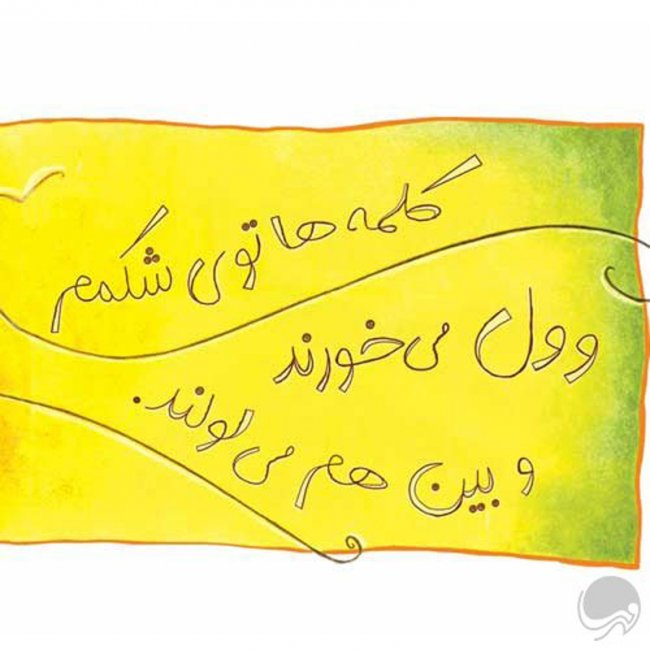 کلمه ها توی شکمم
وول می‌خورند
و بین هم می لولند.